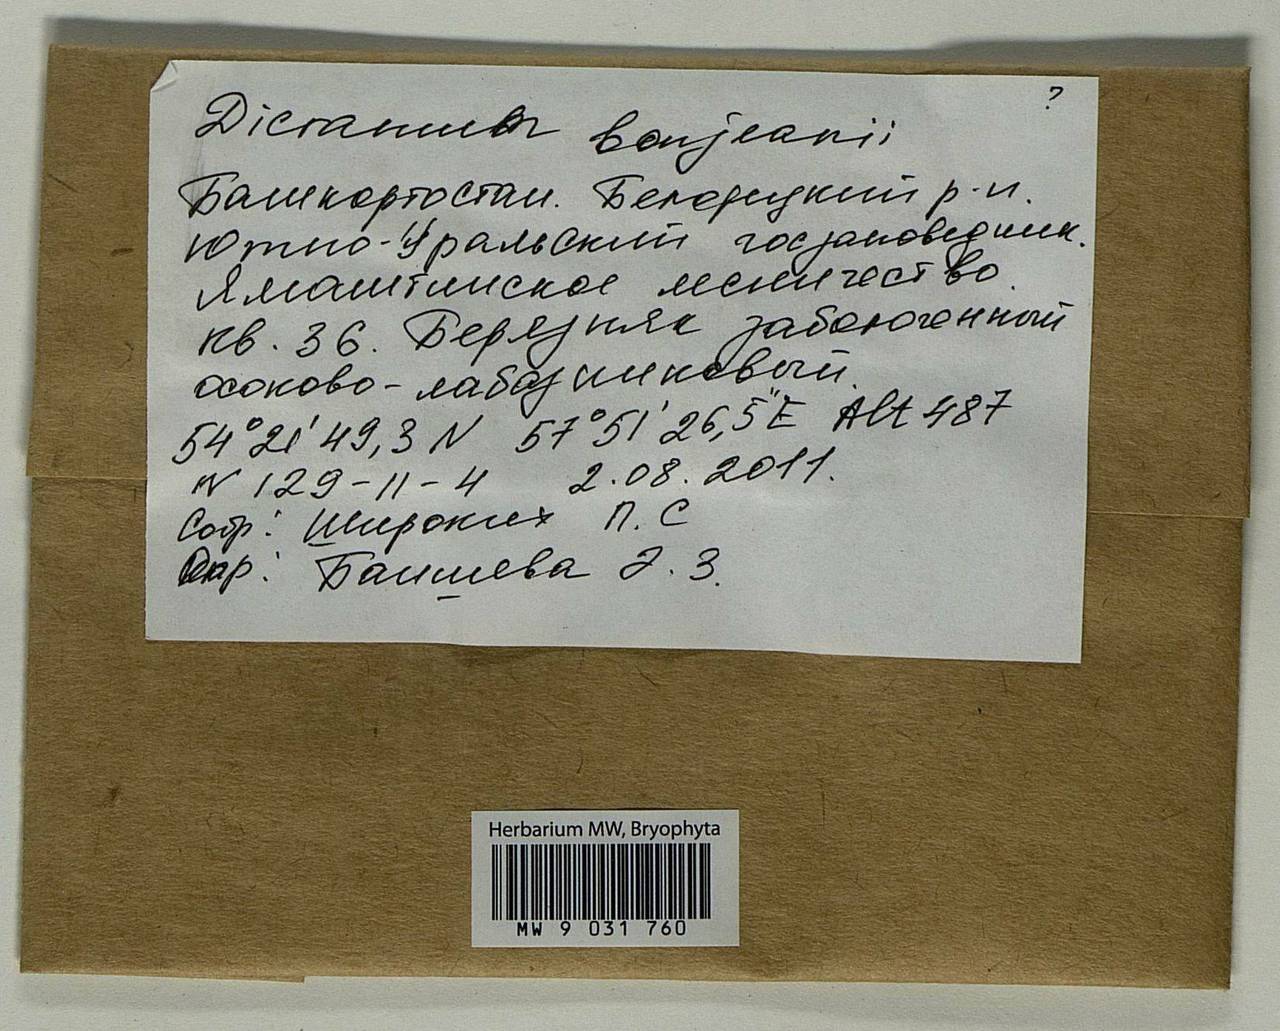 ?
Dicranum bonjeanii
Башкортостан. Белорецкий р-н.
Южно-Уральский госзаповедник.
Ямаштинское лесничество.
кв. 36. Березняк заболоченный
осоково-лабазниковый.
54°21'49,3 N 57°51'26,5"E Alt 487
N 129-11-4 2.08.2011.
Собр: Широких П.С
Опр: Баишева Э.З.
Herbarium MW, Bryophyta
MW 9 031 760